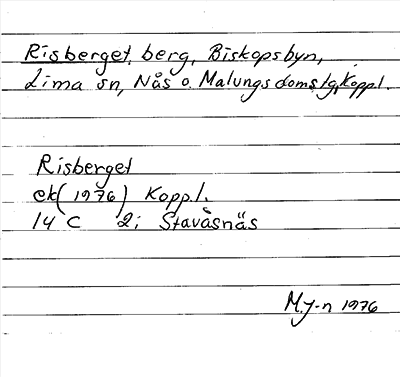 Risberget, berg, Biskopsbyn,
Lima sn, Nås o. Malungs domslg, Koppl.
Risberget
ek (1976) Koppl.
14 C 2; Stavåsnäs
M.y-n 1976